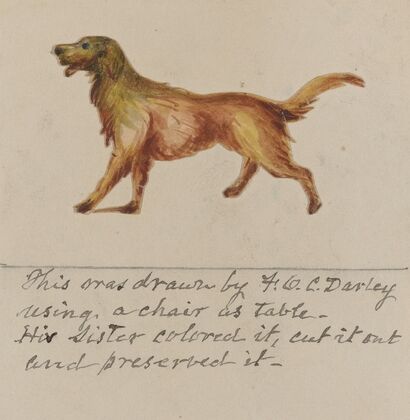 This was drawn by F.O.C. Darley
using, a chair as table-
His Sister colored it, cut it out
and preserved it-